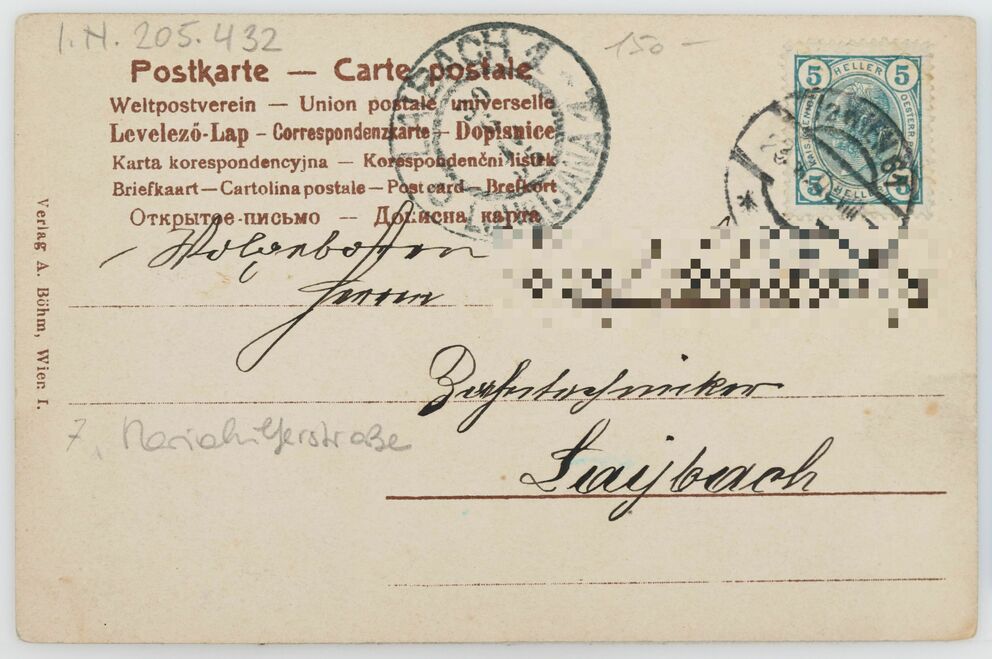 I.N. 205.432
150 –
Postkarte — Carte postale
Weltpostverein — Union postale universelle
Levelező-Lap – Correspondenzkarte – Dopisnice
Karta korespondencyjna — Korespondenční lístek
Briefkaart — Cartolina postale — Post card — Brefkort
Открытое письмо — Дописна карта
LAIBACH 1
LJUBLJANA 1
5 HELLER 5
5 HELLER 5
WIEN
Wolgeboren
Herrn
Zahntechniker
Laybach
7, Mariahilferstraße
Verlag A. Böhm, Wien I.